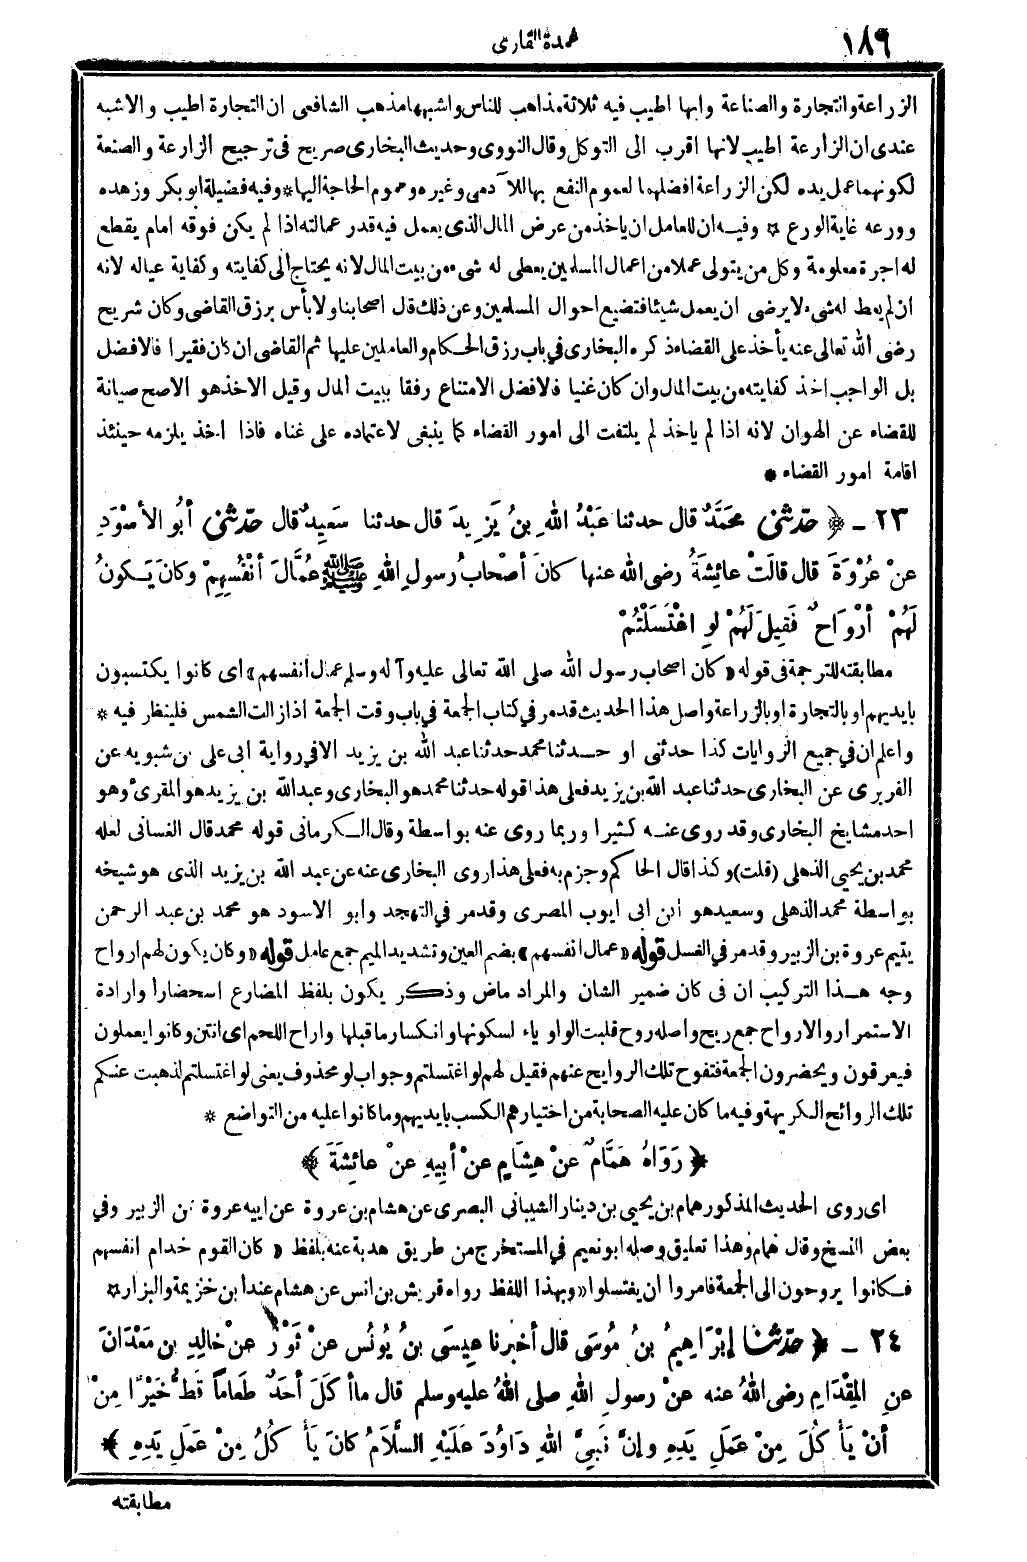 ١٨٩
عمدة القارى
الزراعة والتجارة والصناعة وايها اطيب فيه ثلاثة مذاهب للناس واشبهها مذهب الشافعى ان التجارة اطيب والاشبه
عندى ان الزارعة اطيب لانها اقرب الى التوكل وقال النووى وحديث البخارى صريح فى ترجيح الزارعة والصنعة
لكونهما عمل يده لكن الزراعة افضلهما لعموم النفع بها للآدمى وغيره وعموم الحاجة اليها * وفيه فضيلة ابو بكر وزهده
وورعه غاية الورع * وفيه ان للعامل ان ياخذ من عرض المال الذى يعمل فيه قدر عمالته اذا لم يكن فوقه امام يقطع
له اجرة معلومة وكل من يتولى عملا من اعمال المسلمين يعطى له شىء من بيت المال لانه يحتاج الى كفايته وكفاية عياله لانه
ان لم يعط له شىء لا يرضى ان يعمل شيئا فتضيع احوال المسلمين وعن ذلك قال اصحابنا ولا بأس برزق القاضى وكان شريح
رضى الله تعالى عنه يأخذ على القضاء ذكره البخارى فى باب رزق الحكام والعاملين عليها ثم القاضى ان كان فقيرا فالافضل
بل الواجب اخذ كفايته من بيت المال وان كان غنيا فالافضل الامتناع رفقا ببيت المال وقيل الاخذ هو الاصح صيانة
للقضاء عن الهوان لانه اذا لم ياخذ لم يلتفت الى امور القضاء كما ينبغى لاعتماده على غناه فاذا اخذ يلزمه حينئذ
اقامة امور القضاء *
٢٣ - ﴿ حدّثنى محمَّدٌ قال حدثنا عَبْدُ اللهِ بنُ يَزِيدَ قال حدثنا سَعِيدٌ قال حدّثنى أبُو الأسْوَدِ
عنْ عُرْوَةَ قال قالَتْ عائِشَةُ رضى الله عنها كانَ أصْحابُ رسولِ اللهِ ﷺ عُمَّالَ أنْفُسِهِمْ وكانَ يَكونُ
لَهُمْ أرْوَاحٌ فَقِيلَ لَهُمْ لوِ اغْتَسَلْتُمْ
مطابقته للترجمة فى قوله «كان اصحاب رسول الله صلى الله تعالى عليه وآله وسلم عمال أنفسهم» اى كانوا يكتسبون
بايديهم او بالتجارة او بالزراعة واصل هذا الحديث قد مر في كتاب الجمعة في باب وقت الجمعة اذا زالت الشمس فلينظر فيه *
واعلم ان في جميع الروايات كذا حدثنى او حدثنا محمد حدثنا عبد الله بن يزيد الا في رواية ابى على بن شبويه عن
الفربرى عن البخارى حدثنا عبد الله بن يزيد فعلى هذا قوله حدثنا محمد هو البخارى وعبد الله بن يزيد هو المقرىء وهو
احد مشايخ البخارى وقد روى عنه كثيرا وربما روى عنه بواسطة وقال الكرمانى قوله محمد قال الغسانى لعله
محمد بن يحيى الذهلى (قلت) وكذا قال الحاكم وجزم به فعلى هذا روى البخارى عنه عن عبد الله بن يزيد الذى هو شيخه
بواسطة محمد الذهلى وسعيد هو ابن ابى ايوب المصرى وقد مر في التهجد وابو الاسود هو محمد بن عبد الرحمن
يتيم عروة بن الزبير وقد مر في الغسل قوله «عمال انفسهم» بضم العين وتشديد الميم جمع عامل قوله «وكان يكون لهم ارواح
وجه هذا التركيب ان فى كان ضمير الشان والمراد ماض وذكر يكون بلفظ المضارع اسحضارا وارادة
الاستمرار والارواح جمع ريح واصله روح قلبت الواو ياء لسكونها وانكسار ما قبلها واراح اللحم اى انتن وكانوا يعملون
فيعرقون ويحضرون الجمعة فتفوح تلك الروايح عنهم فقيل لهم لو اغتسلتم وجواب لو محذوف يعنى لو اغتسلتم لذهبت عنكم
تلك الروائح الكريهة وفيه ما كان عليه الصحابة من اختيارهم الكسب بايديهم وما كانوا عليه من التواضع *
﴿ رَوَاهُ هَمَّامٌ عنْ هِشَامٍ عنْ أبِيهِ عنْ عائِشَةَ ﴾
اى روى الحديث المذكور همام بن يحيى بن دينار الشيبانى البصرى عن هشام بن عروة عن ابيه عروة بن الزبير وفي
بعض النسخ وقال همام وهذا تعليق وصله ابو نعيم في المستخرج من طريق هدبة عنه بلفظ «كان القوم خدام انفسهم
فكانوا يروحون الى الجمعة فامروا ان يغتسلوا» وبهذا اللفظ رواه قريش بن انس عن هشام عند ابن خزيمة والبزار *
٢٤ - ﴿ حدّثنا إبْرَاهِيمُ بنُ مُوسَى قال أخبرنا عِيسَى بنُ يُونُس عنْ ثَوْرٍ عنْ خالِدِ بنِ مَعْدَانَ
عنِ المِقْدَامِ رضى اللهُ عنه عنْ رسولِ اللهِ صلى اللهُ عليه وسلم قال ما أكَلَ أحَدٌ طَعاماً قَطُّ خَيْرًا مِنْ
أنْ يَأْكُلَ مِنْ عَمَلِ يَدِهِ وإنَّ نَبِيَّ اللهِ دَاوُدَ عَلَيْهِ السَّلَامُ كانَ يَأْكُلُ مِنْ عَمَلِ يَدِهِ ﴾
مطابقته